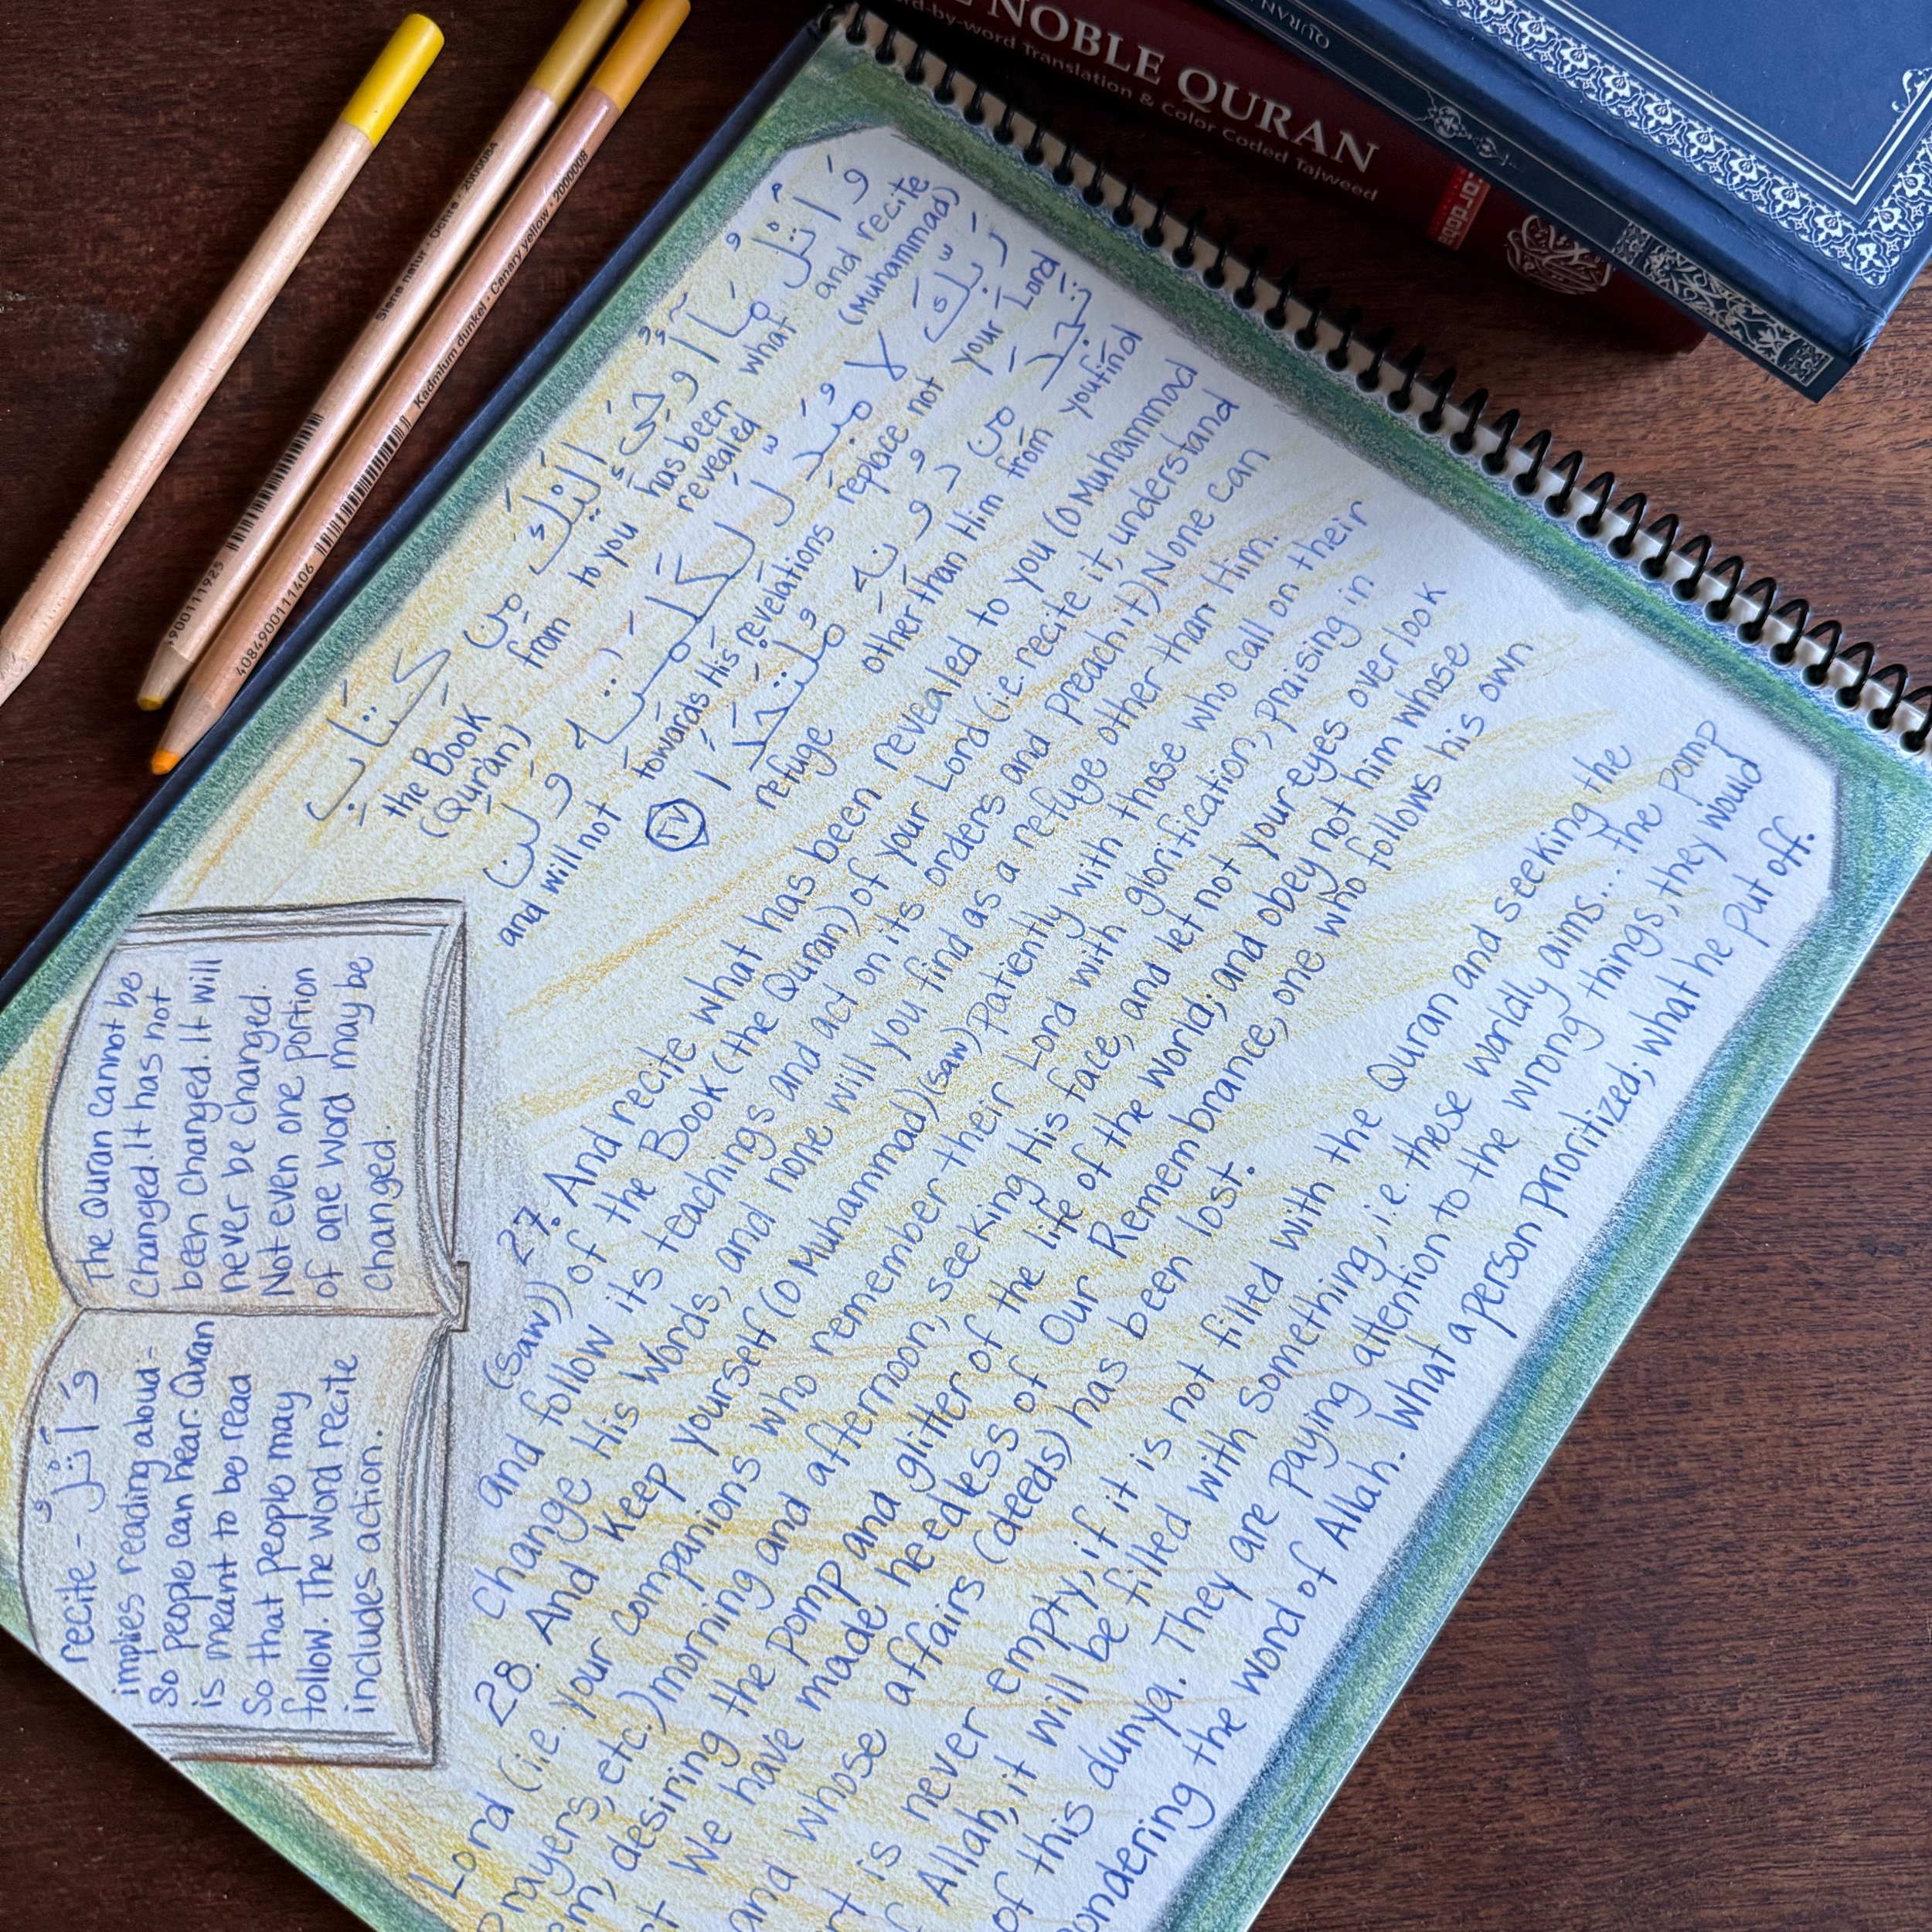 Siena natur · Ochre · 2000084
900111925
Kadmium dunkel · Canary yellow · 2000008
4084900111406
QURAN
NOBLE QURAN
word Translation & Color Coded Tajweed
وَاتْلُ مَآ أُوحِىَ إِلَيْكَ مِن كِتَابِ
the Book from to you has been what and recite
(Qur'an) revealed (Muhammad)
رَبِّكَ لَا مُبَدِّلَ لِكَلِمَـٰتِهِ وَلَن
and will not towards His revelations replace not your Lord
تَجِدَ مِن دُونِهِ مُلْتَحَدًا ٢٧
refuge other than Him from you find
recite - وَاتْلُ
implies reading aloud-
So people can hear. Quran
is meant to be read
So that people may
follow. The word recite
includes action.
The Quran cannot be
Changed. It has not
been Changed. It will
never be changed.
Not even one portion
of one word may be
Changed.
27. And recite what has been revealed to you (O Muhammad
(saw)) of the Book (the Quran) of your Lord (i.e. recite it, understand
and follow its teachings and act on its orders and preach it) None can
Change His Words, and none will you find as a refuge other than Him.
28. And keep yourself (O Muhammad)(saw) Patiently with those who call on their
Lord (i.e. Your Companions who remember their Lord with glorification, praising in
Prayers, etc.) morning and afternoon, seeking His face, and let not your eyes overlook
em, desiring the pomp and glitter of the life of the world; and obey not him whose
rt We have made heedless of Our Remembrance, one who follows his own
and whose affairs (deeds) has been lost.
rt is never empty, if it is not filled with the Quran and seeking the
f Allah, it will be filled with something, i.e. these worldly aims... the pomp
of this dunya. They are paying attention to the wrong things, they would
ondering the word of Allah. What a person prioritized; what he put off.